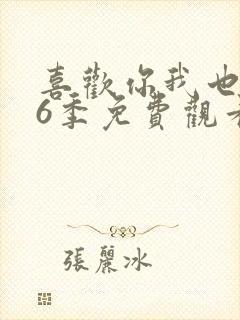 喜歡你我也
6季免費觀
張麗冰